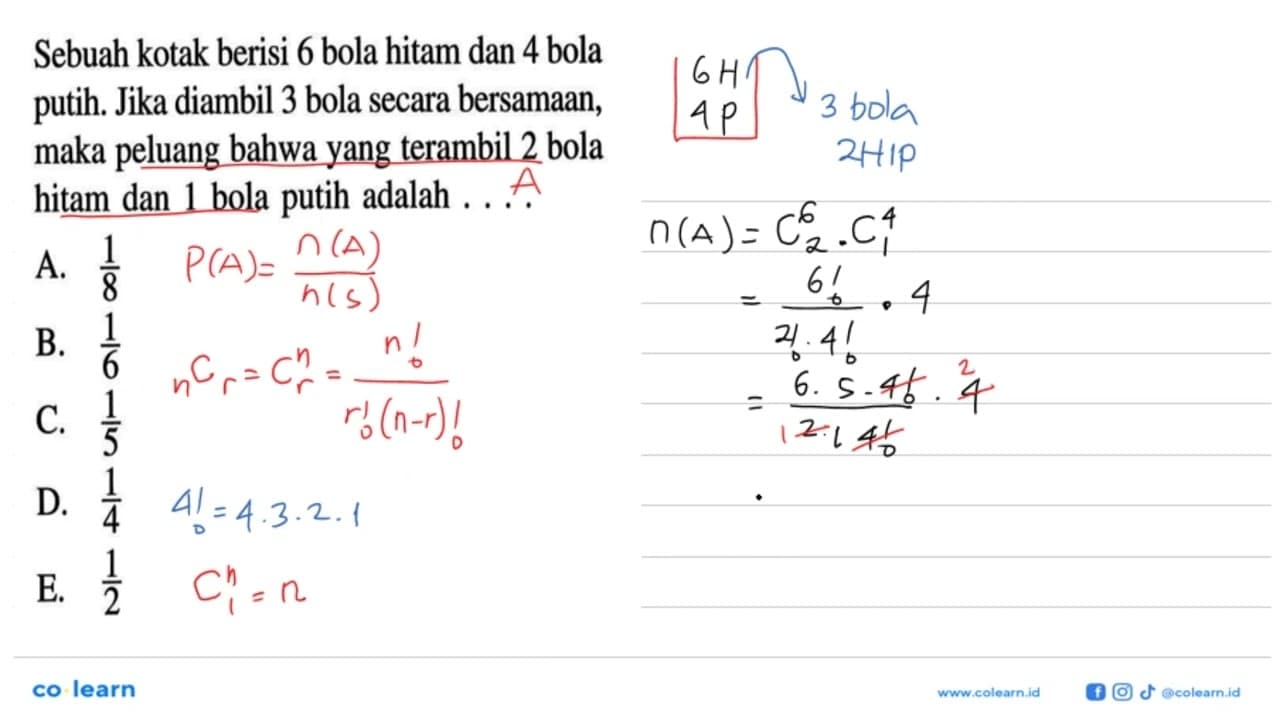 Sebuah kotak berisi 6 bola hitam dan 4 bola
putih. Jika diambil 3 bola secara bersamaan,
maka peluang bahwa yang terambil 2 bola
hitam dan 1 bola putih adalah . . . .
A
A. 1/8
B. 1/6
C. 1/5
D. 1/4
E. 1/2
P(A) = n(A)/n(S)
nCr = C^n_r = n!/r!(n-r)!
4! = 4.3.2.1
C^n_1 = n
6H
4P
3 bola
2H1P
n(A) = C^6_2 . C^4_1
= 6!/2!.4! . 4
= 6.5.4!/2.1 4! . 4
1 2
.
co learn
www.colearn.id
@colearn.id